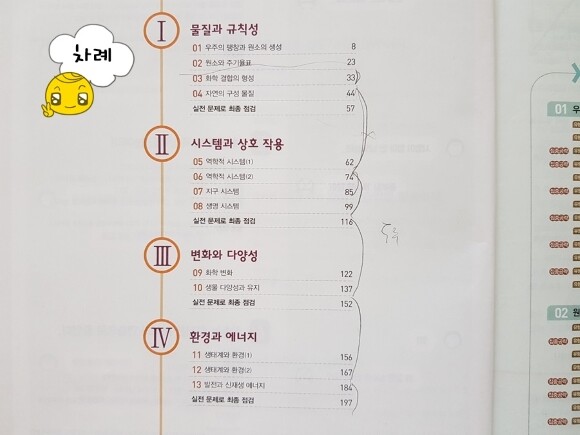 차례
I 물질과 규칙성
01 우주의 팽창과 원소의 생성 8
02 원소와 주기율표 23
03 화학 결합의 형성 33
04 자연의 구성 물질 44
실전 문제로 최종 점검 57
II 시스템과 상호 작용
05 역학적 시스템(1) 62
06 역학적 시스템(2) 74
07 지구 시스템 85
08 생명 시스템 99
실전 문제로 최종 점검 116
III 변화와 다양성
09 화학 변화 122
10 생물 다양성과 유지 137
실전 문제로 최종 점검 152
IV 환경과 에너지
11 생태계와 환경(1) 156
12 생태계와 환경(2) 167
13 발전과 신재생 에너지 184
실전 문제로 최종 점검 197
01 우
02 원